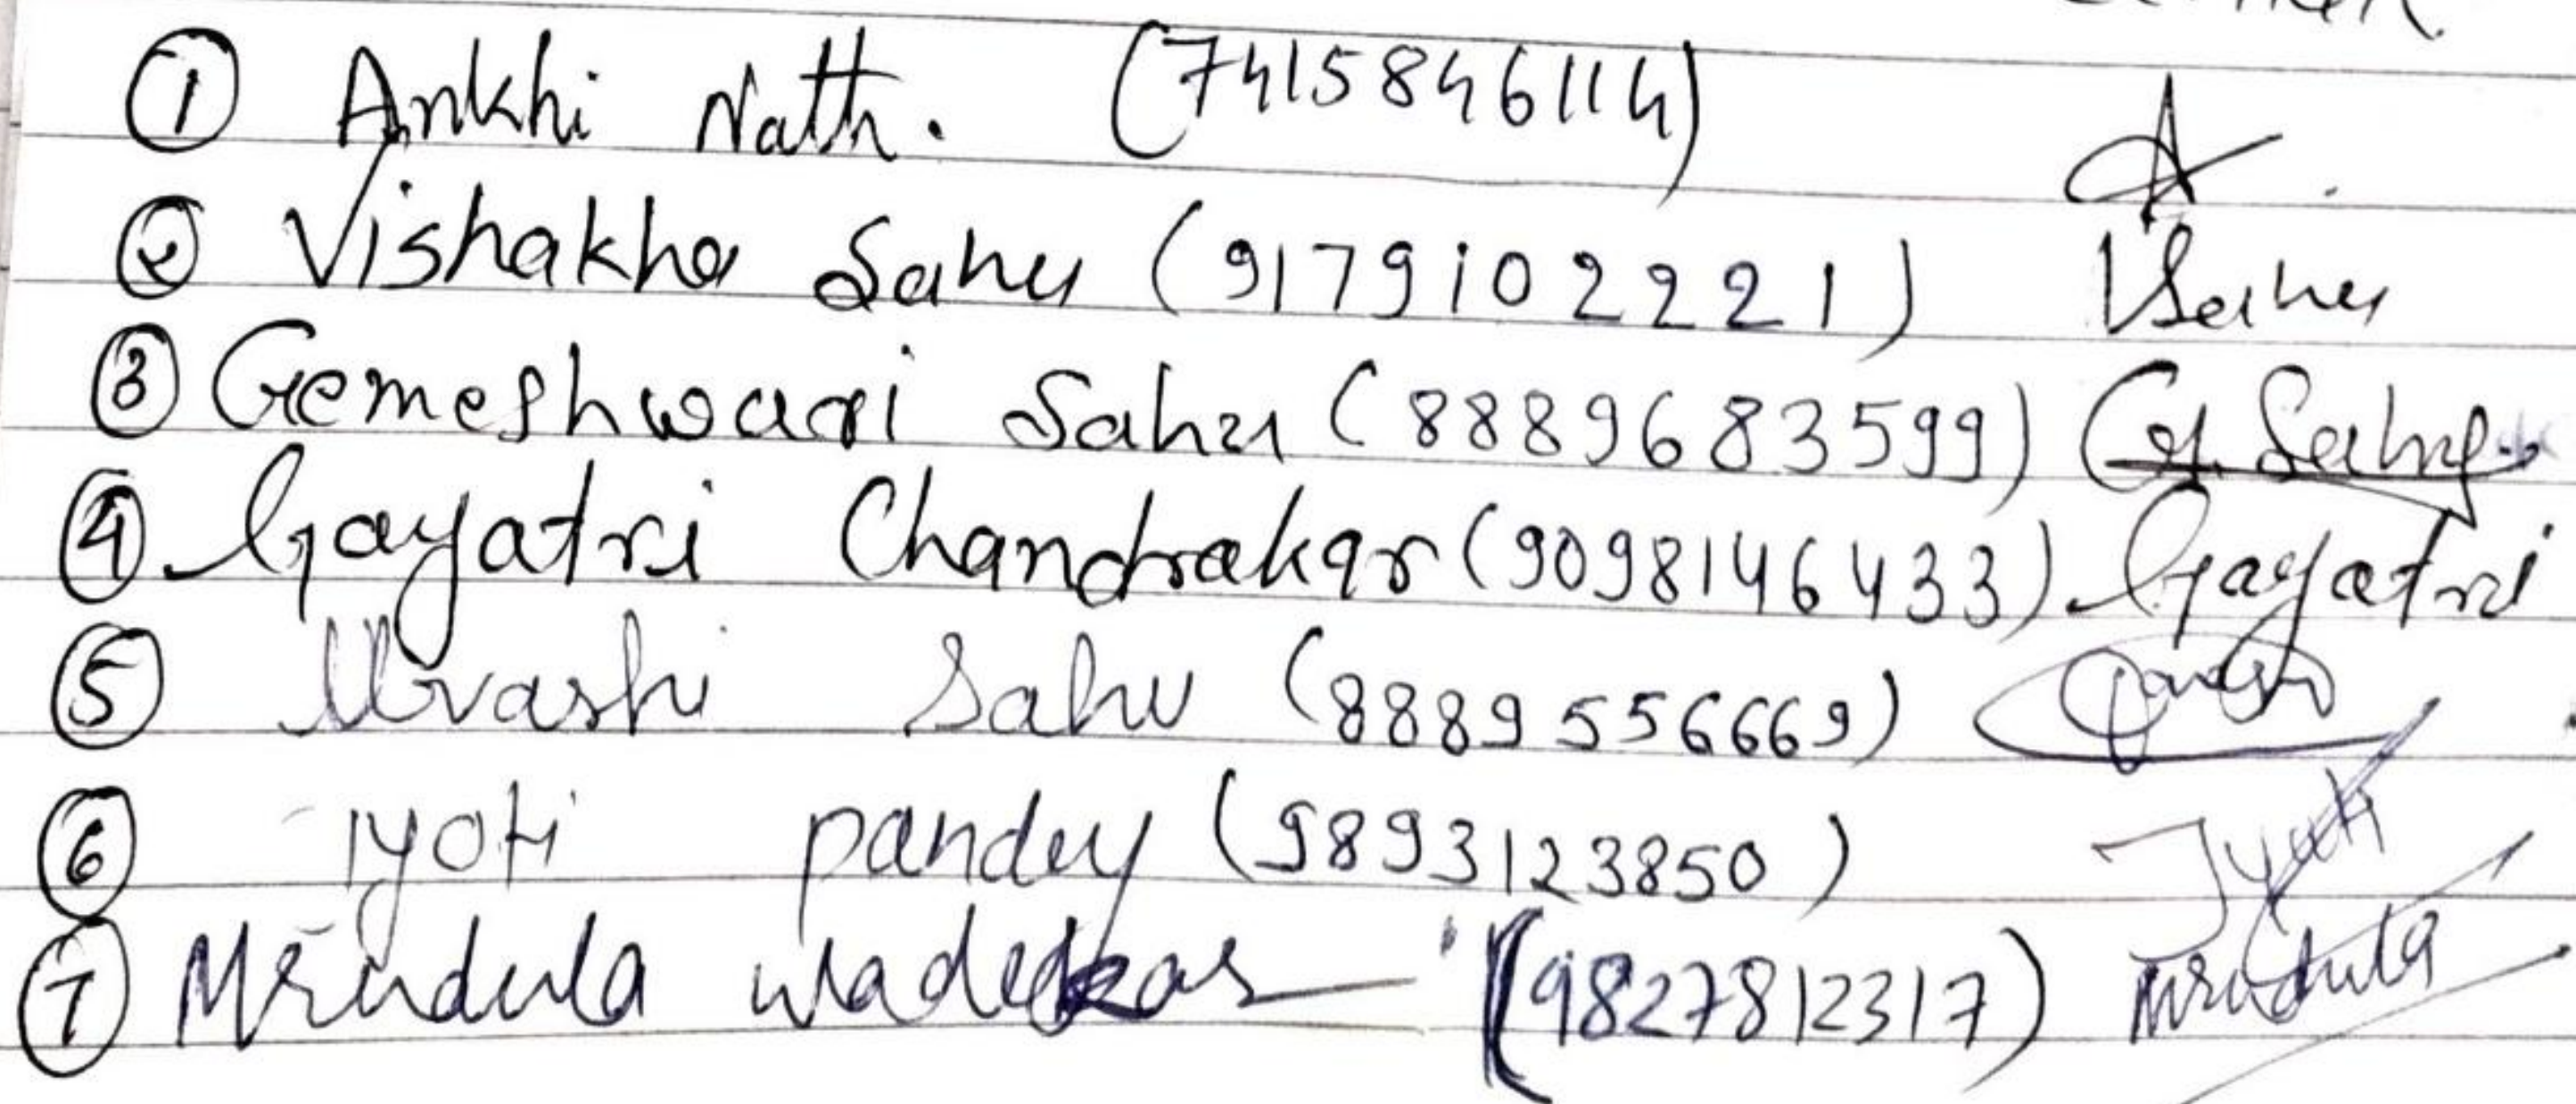 ① Ankhi Nath. (7415846114)
② Vishakha Sahu (9179102221) VSahu
③ Gemeshwari Sahu (8889683599) G. Sahu
④ Gayatri Chandrakar (9098146433) Gayatri
⑤ Urvashi Sahu (8889556669)
⑥ Jyoti pandey (9893123850) Jyoti
⑦ Mrudula wadekar (9827812317) Mrudula